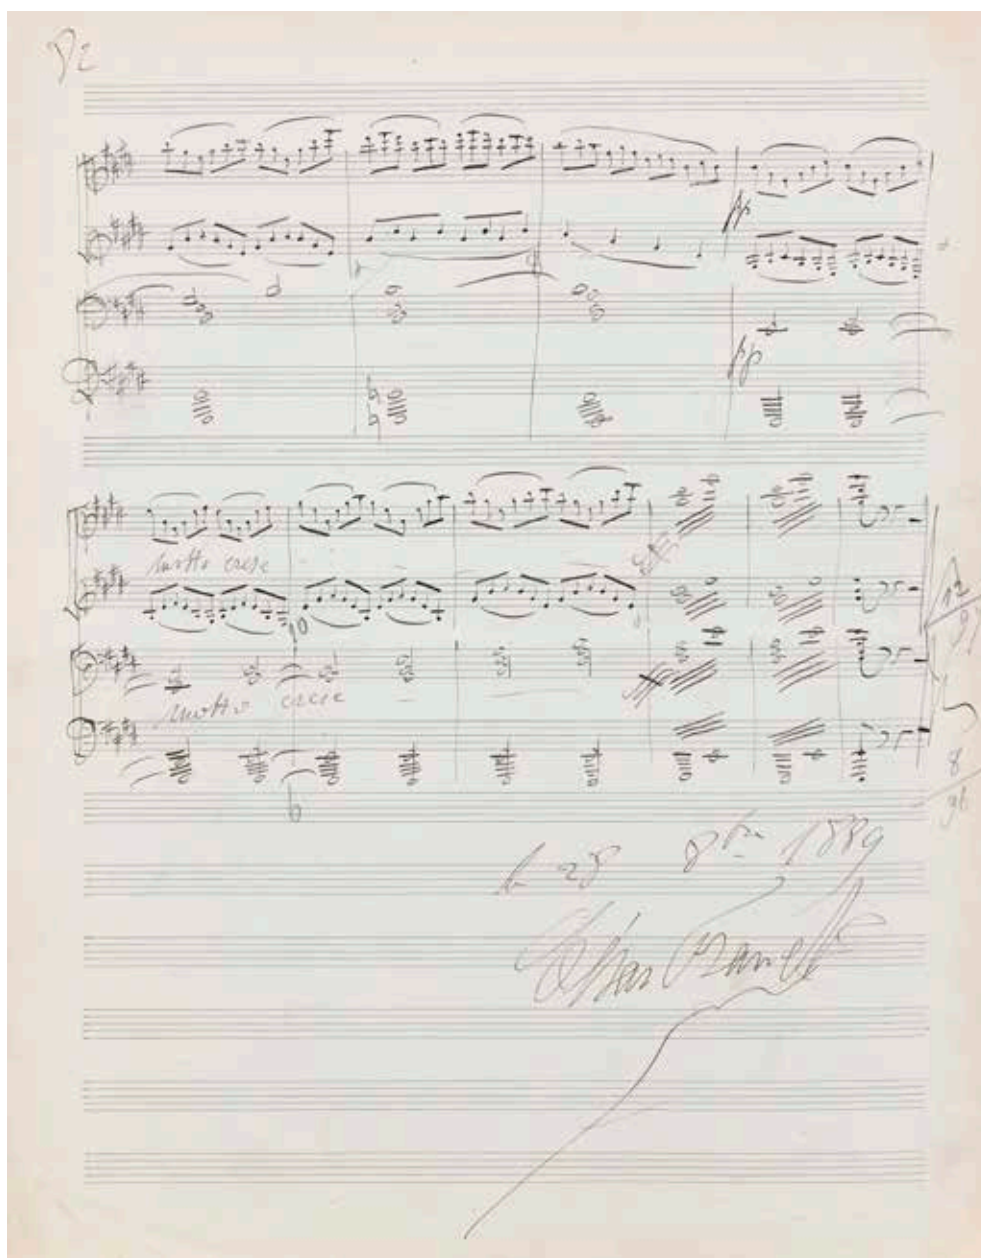 pp
pp
molto cresc
molto cresc
le 28 8bre 1889
César Franck